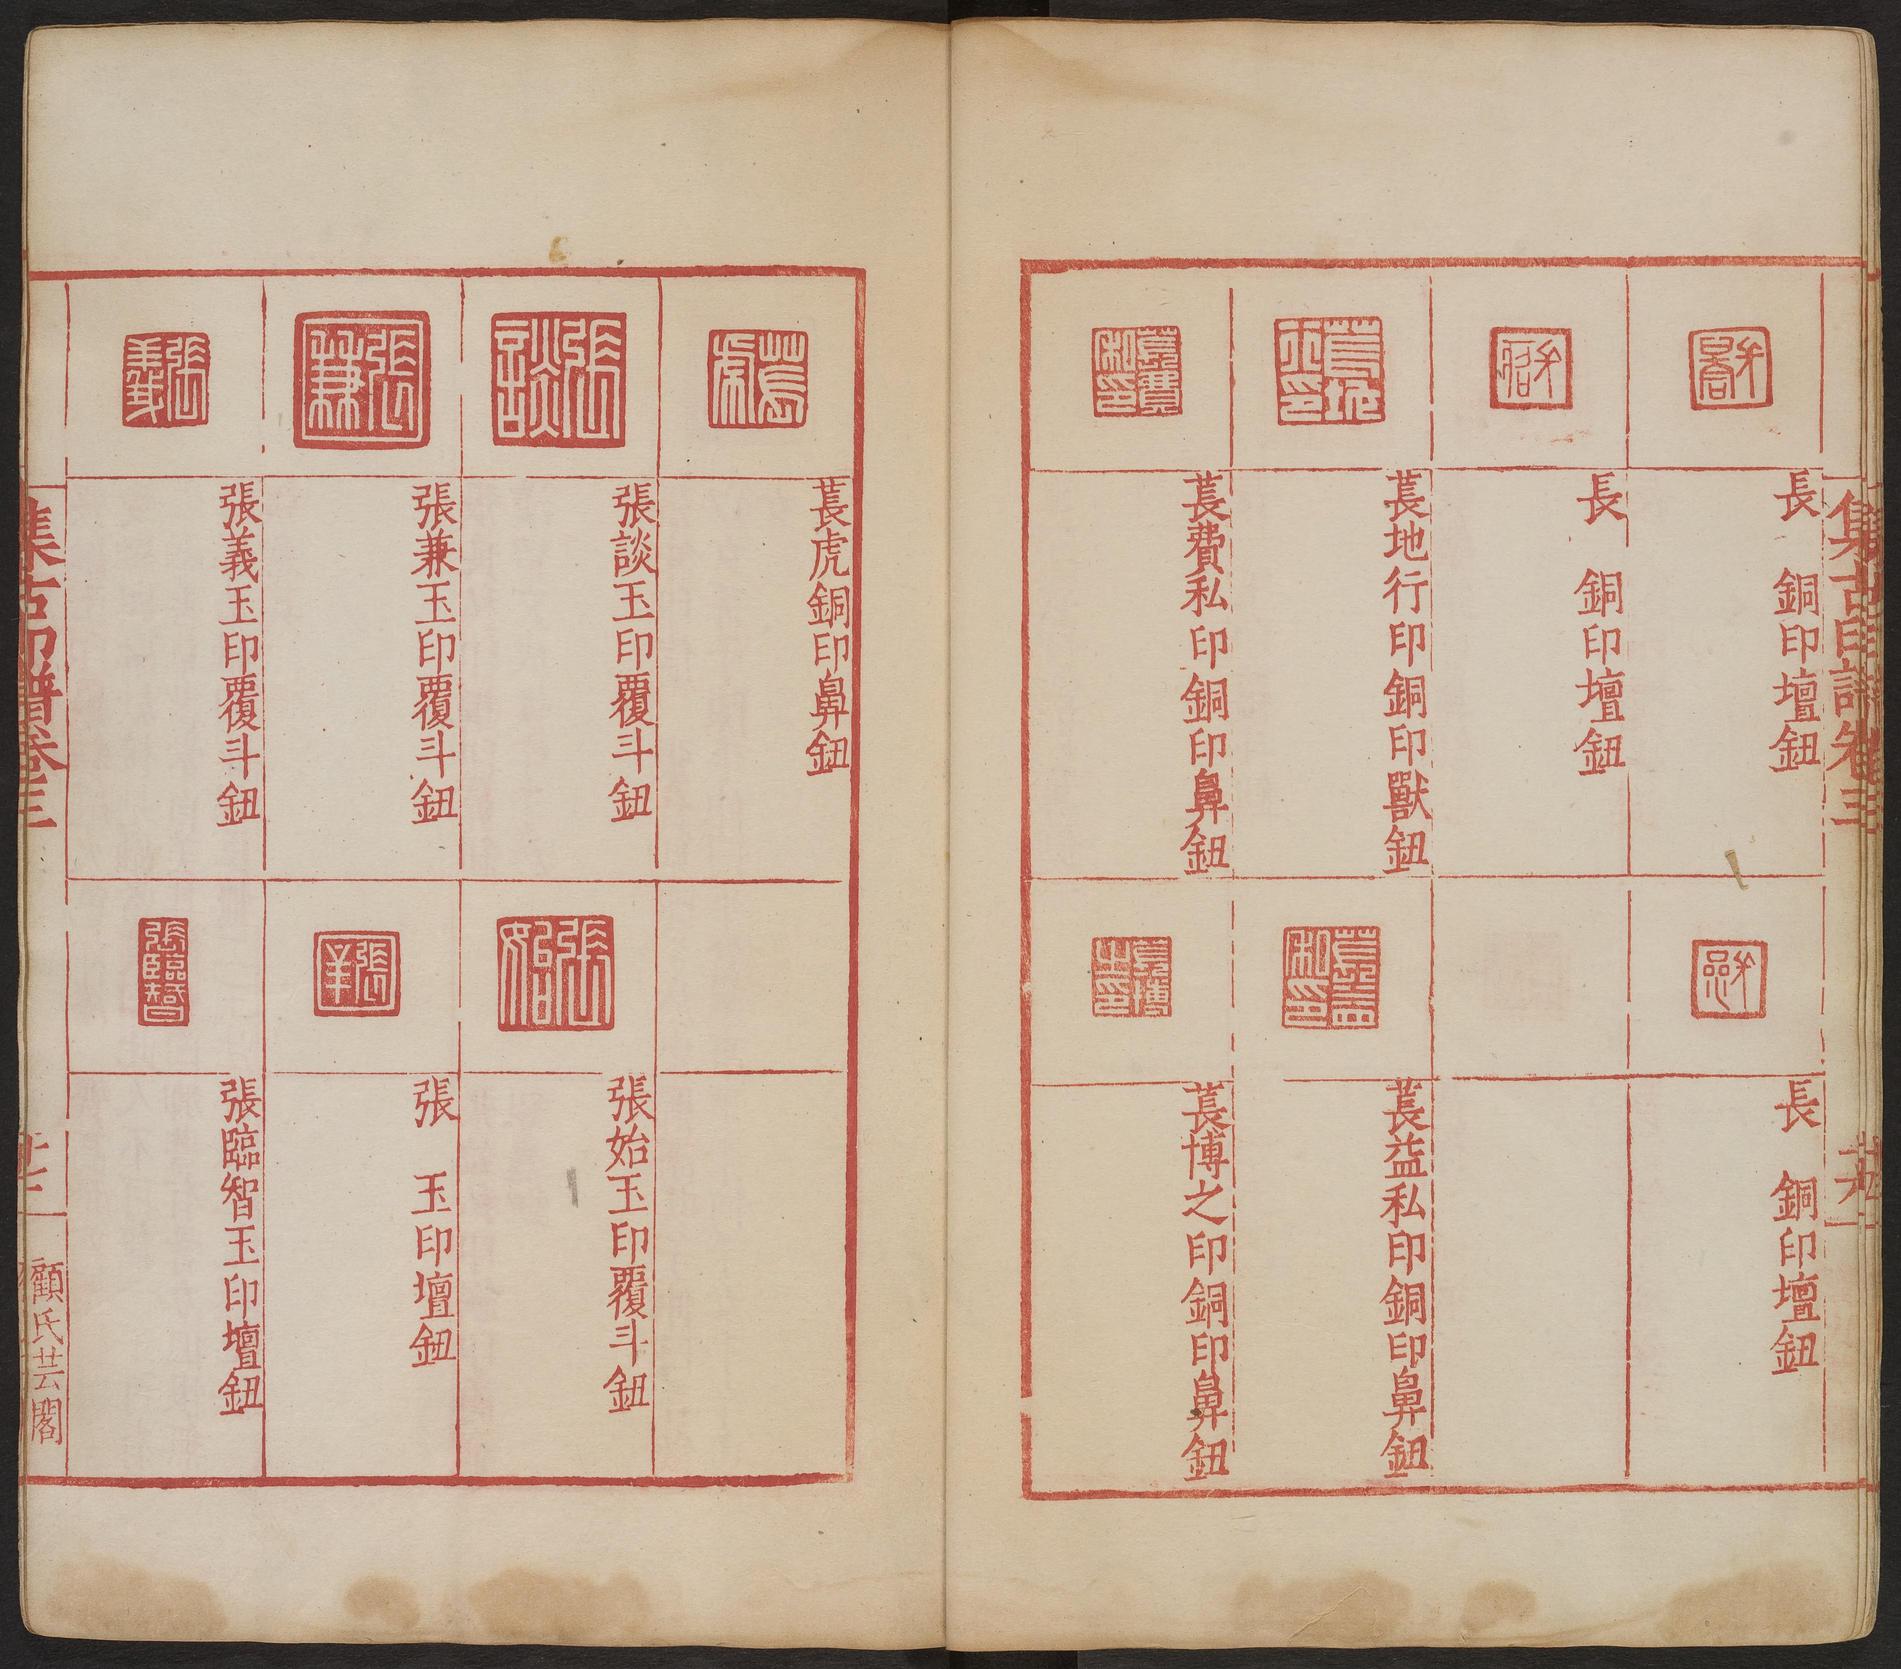 集古印譜卷三
長　銅印壇鈕
長　銅印壇鈕
萇地行印銅印獸鈕
萇費私印銅印鼻鈕
長　銅印壇鈕
萇益私印銅印鼻鈕
萇博之印銅印鼻鈕
萇虎銅印鼻鈕
張談玉印覆斗鈕
張兼玉印覆斗鈕
張義玉印覆斗鈕
張始玉印覆斗鈕
張　玉印壇鈕
張臨智玉印壇鈕
集古印譜卷三
顧氏芸閣